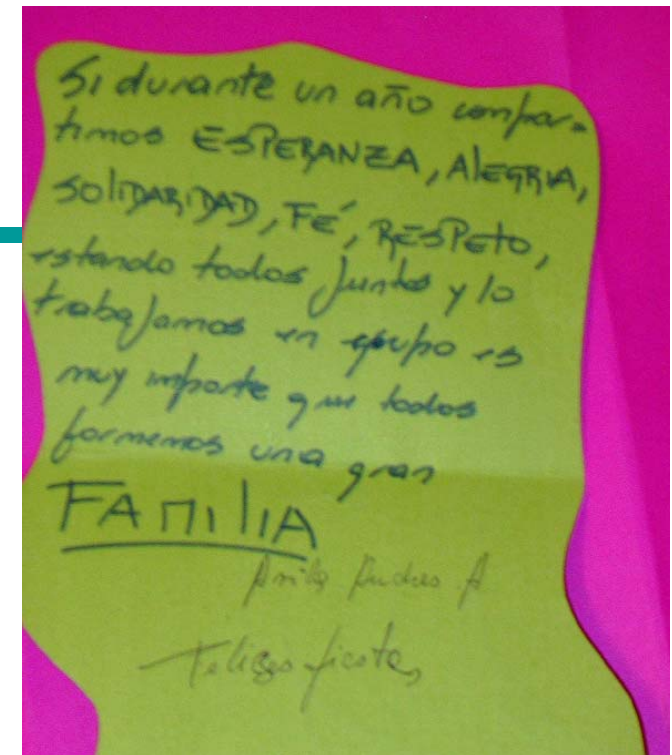 Si durante un año compar-
timos ESPERANZA, AlEGRIA,
SOlIDARIDAD, FÉ, RESPEtO,
estando todos Juntos y lo
trabaJamos en equipo es
muy importe que todos
formemos una gran
FAMIlIA
Felices fiestas